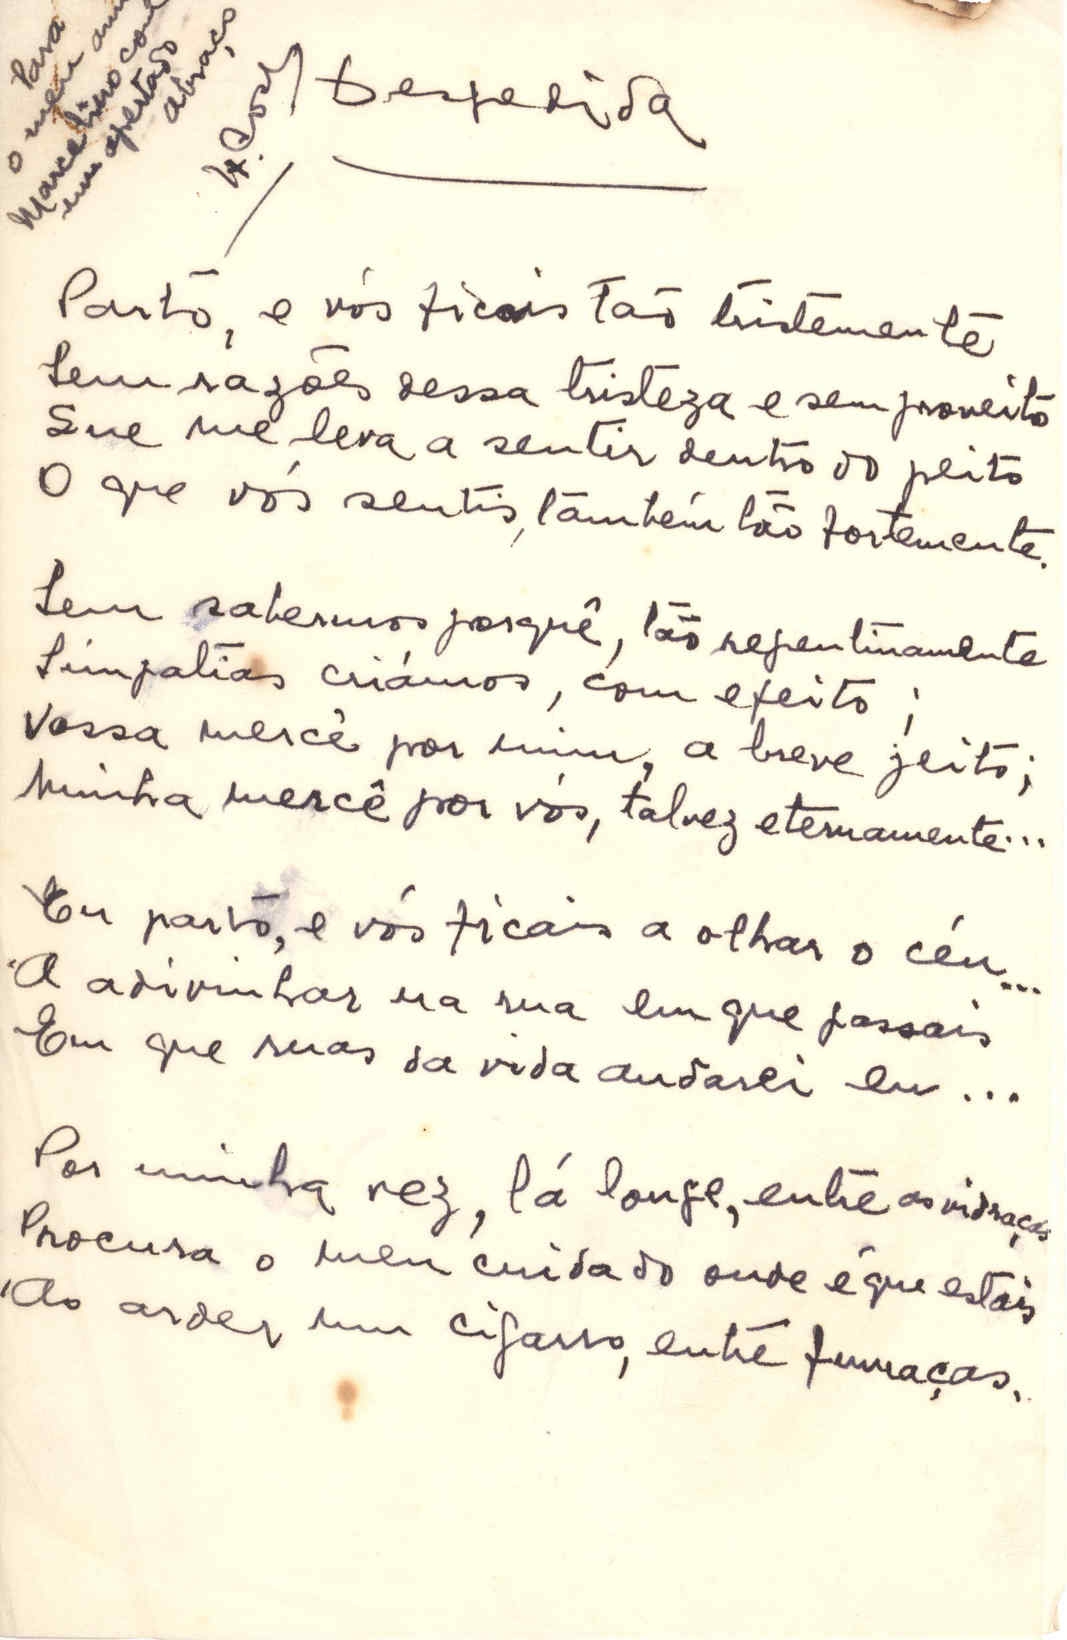 Para
o meu
Marcelino com
um apertado
abraço
Despedida
Parto, e vós ficais tão tristemente
Sem razões dessa tristeza e sem proveito
Que me leva a sentir dentro do peito
O que vós sentis, também tão fortemente.
Sem sabermos porquê, tão repentinamente
Simpatias criámos, com efeito;
Vossa mercê por mim, a breve jeito;
Minha mercê por vós, talvez eternamente...
Eu parto, e vós ficais a olhar o céu...
A adivinhar na rua em que passais
Em que ruas da vida andarei eu...
Por minha vez, lá longe, entre as vidraças
Procura o meu cuidado onde é que estais
Ao arder um cigarro, entre fumaças.